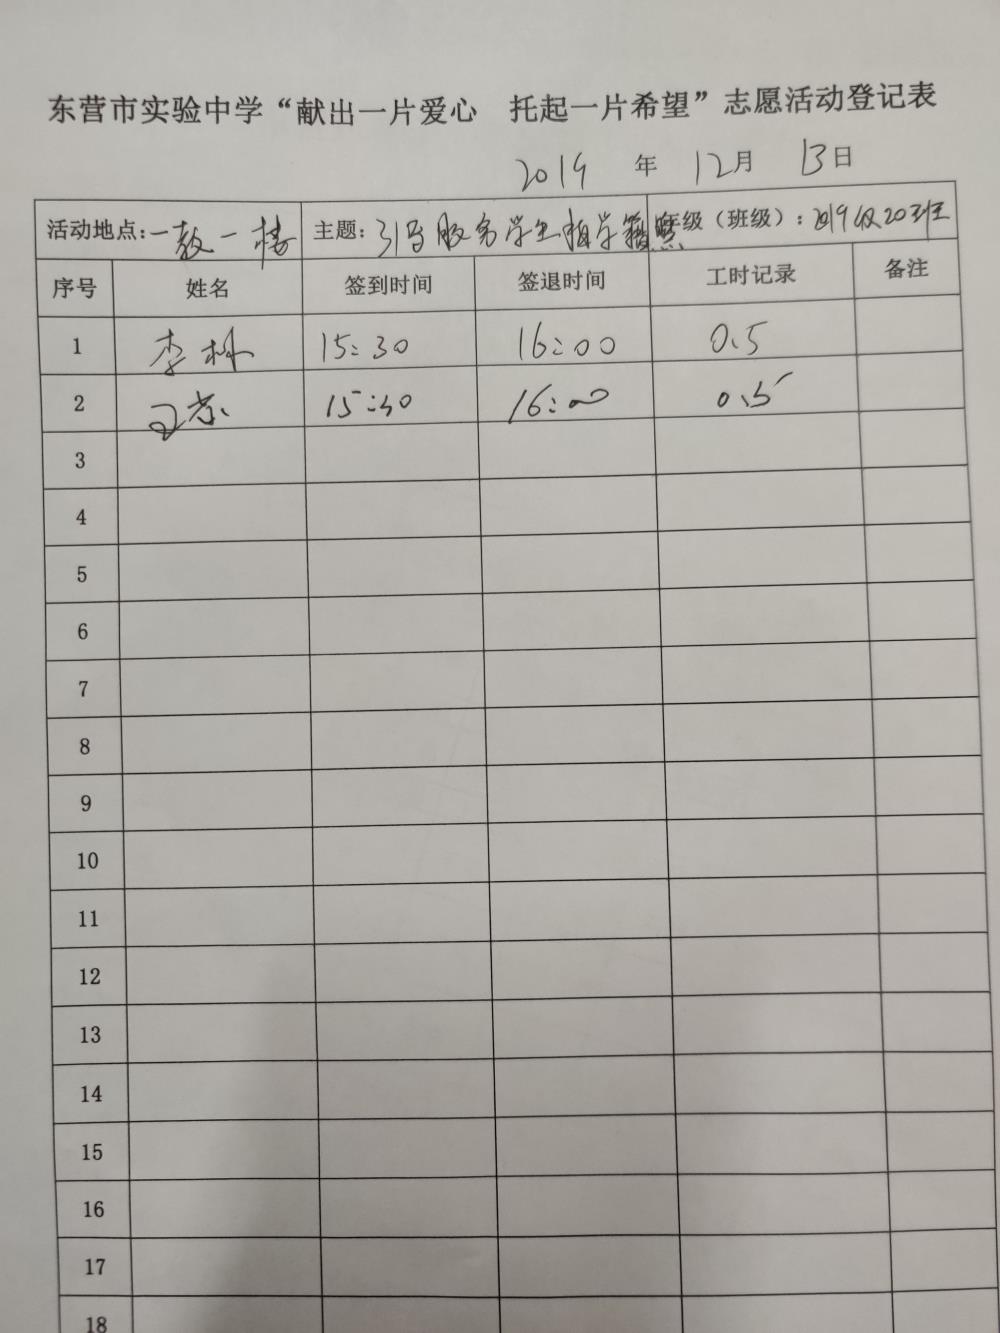 东营市实验中学“献出一片爱心 托起一片希望”志愿活动登记表
2019 年 12 月 13 日
活动地点：一教一楼 主题：引导服务学生拍学籍照 年级（班级）：2019级20班
序号 姓名 签到时间 签退时间 工时记录 备注
1 李林 15:30 16:00 0.5
2 15:30 16:00 0.5
3
4
5
6
7
8
9
10
11
12
13
14
15
16
17
18